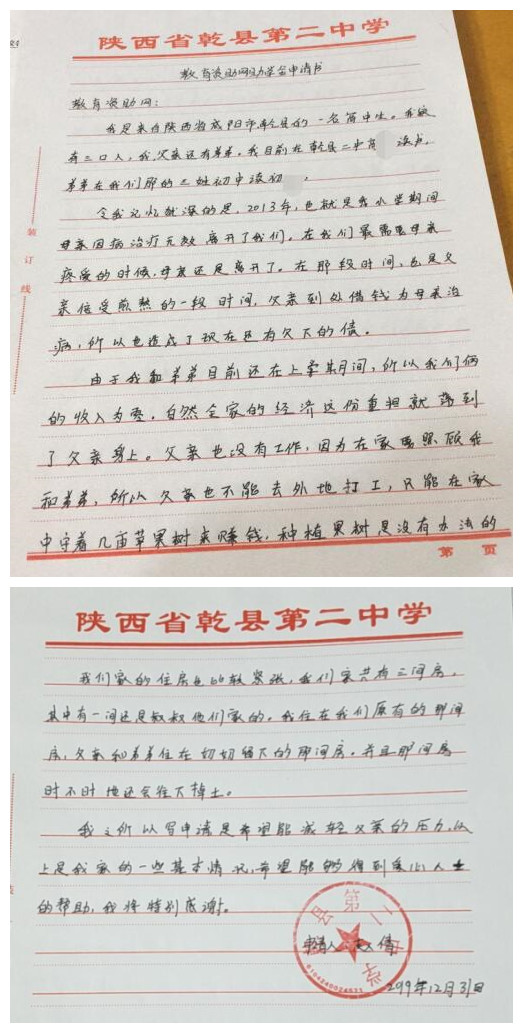 陕西省乾县第二中学
教育资助网助学金申请书
教育资助网：
我是来自陕西省咸阳市乾县的一名高中生。我家
有三口人，我父亲还有弟弟。我目前在乾县二中高 读书，
弟弟在我们那的 姓初中读初 。
令我记忆犹深的是，2013年，也就是我小学期间
母亲因病治疗无效离开了我们。在我们最需要母亲
疼爱的时候，母亲还是离开了。在那段时间，也是父
亲倍受煎熬的一段时间，父亲到处借钱为母亲治
病，所以也造成了现在还有欠下的债。
由于我和弟弟目前还在上学期间，所以我们俩
的收入为零，自然全家的经济这份重担就落到
了父亲身上。父亲也没有工作，因为在家要照顾我
和弟弟，所以父亲也不能去外地打工，只能在家
中守着几亩苹果树来赚钱，种植果树是没有办法的
装
订
线
第 页
陕西省乾县第二中学
我们家的住房也比较紧张，我们家共有三间房，
其中有一间还是叔叔他们家的。我住在我们原有的那间
房，父亲和弟弟住在 留下的那间房。并且那间房
时不时地还会往下掉土。
我之所以写申请是希望能减轻父亲的压力，以
上是我家的一些基本情况，希望能够得到爱心人士
的帮助，我将特别感谢。
县第二中学
申请人 倩
年12月31日